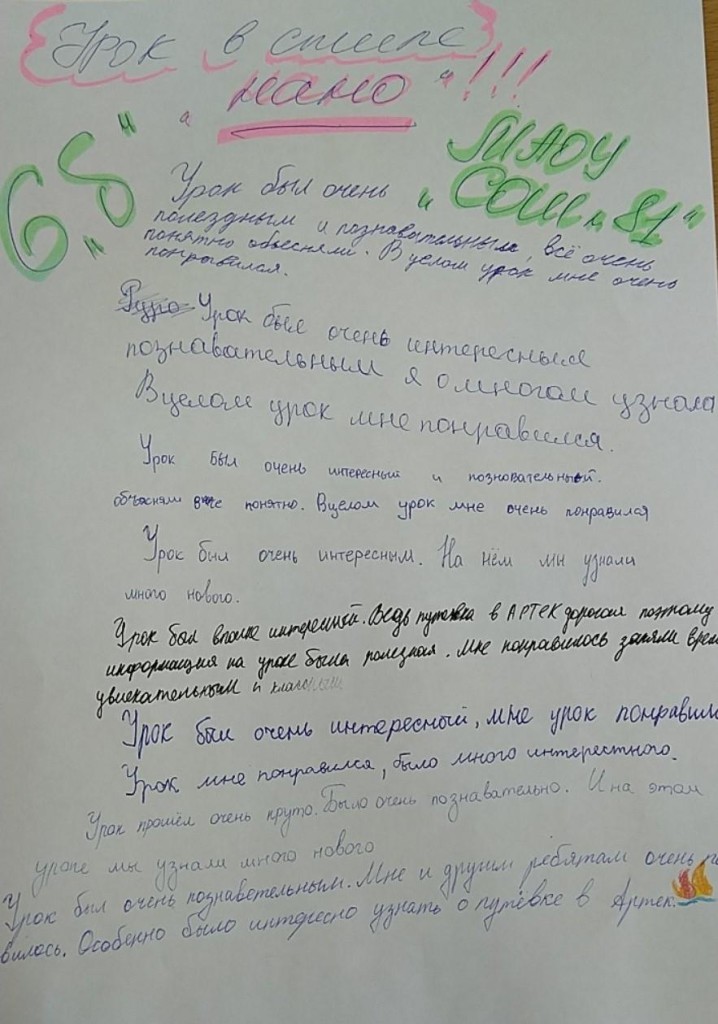 Урок в стиле
"нано"!!!
6 "Б"
МАОУ
"СОШ №81"
Урок был очень
полездным и познавательным, всё очень
понятно обьесняли. В целом урок мне очень
понравился.
Урок был очень интересным
познавательным я о многом узнала
В целом урок мне понравился.
Урок был очень интересный и позновательный.
объясняли все понятно. Вцелом урок мне очень понравился
Урок был очень интересным. На нём мы узнали
много нового.
Урок был вполне интересный. Ведь путевка в АРТЕК дорогая поэтому
информация на уроке была полезная. Мне понравилось заняли врем
увлекательным и классным
Урок был очень интересный, мне урок понравил
Урок мне понравился, было много интерестного.
Урок прошёл очень круто. Было очень познавательно. И на этом
уроке мы узнали много нового
Урок был очень познавательным. Мне и другим ребятам очень по
вилось. Особенно было интересно узнать о путёвке в Артек.